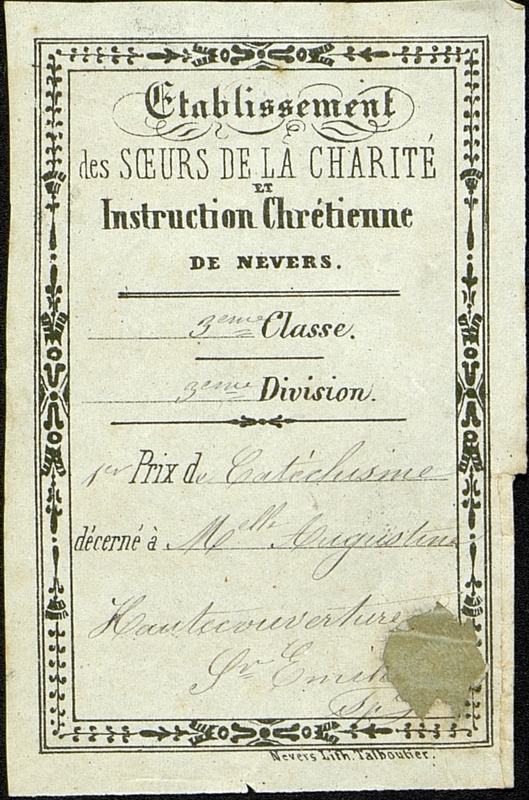 Etablissement
des SŒURS DE LA CHARITÉ
ET
Instruction Chrétienne
DE NEVERS.
3eme Classe.
3eme Division.
1er Prix de Catéchisme
décerné à Melle Augustine
Hautecouverture
Sr
Nevers Lith. Talboutier.